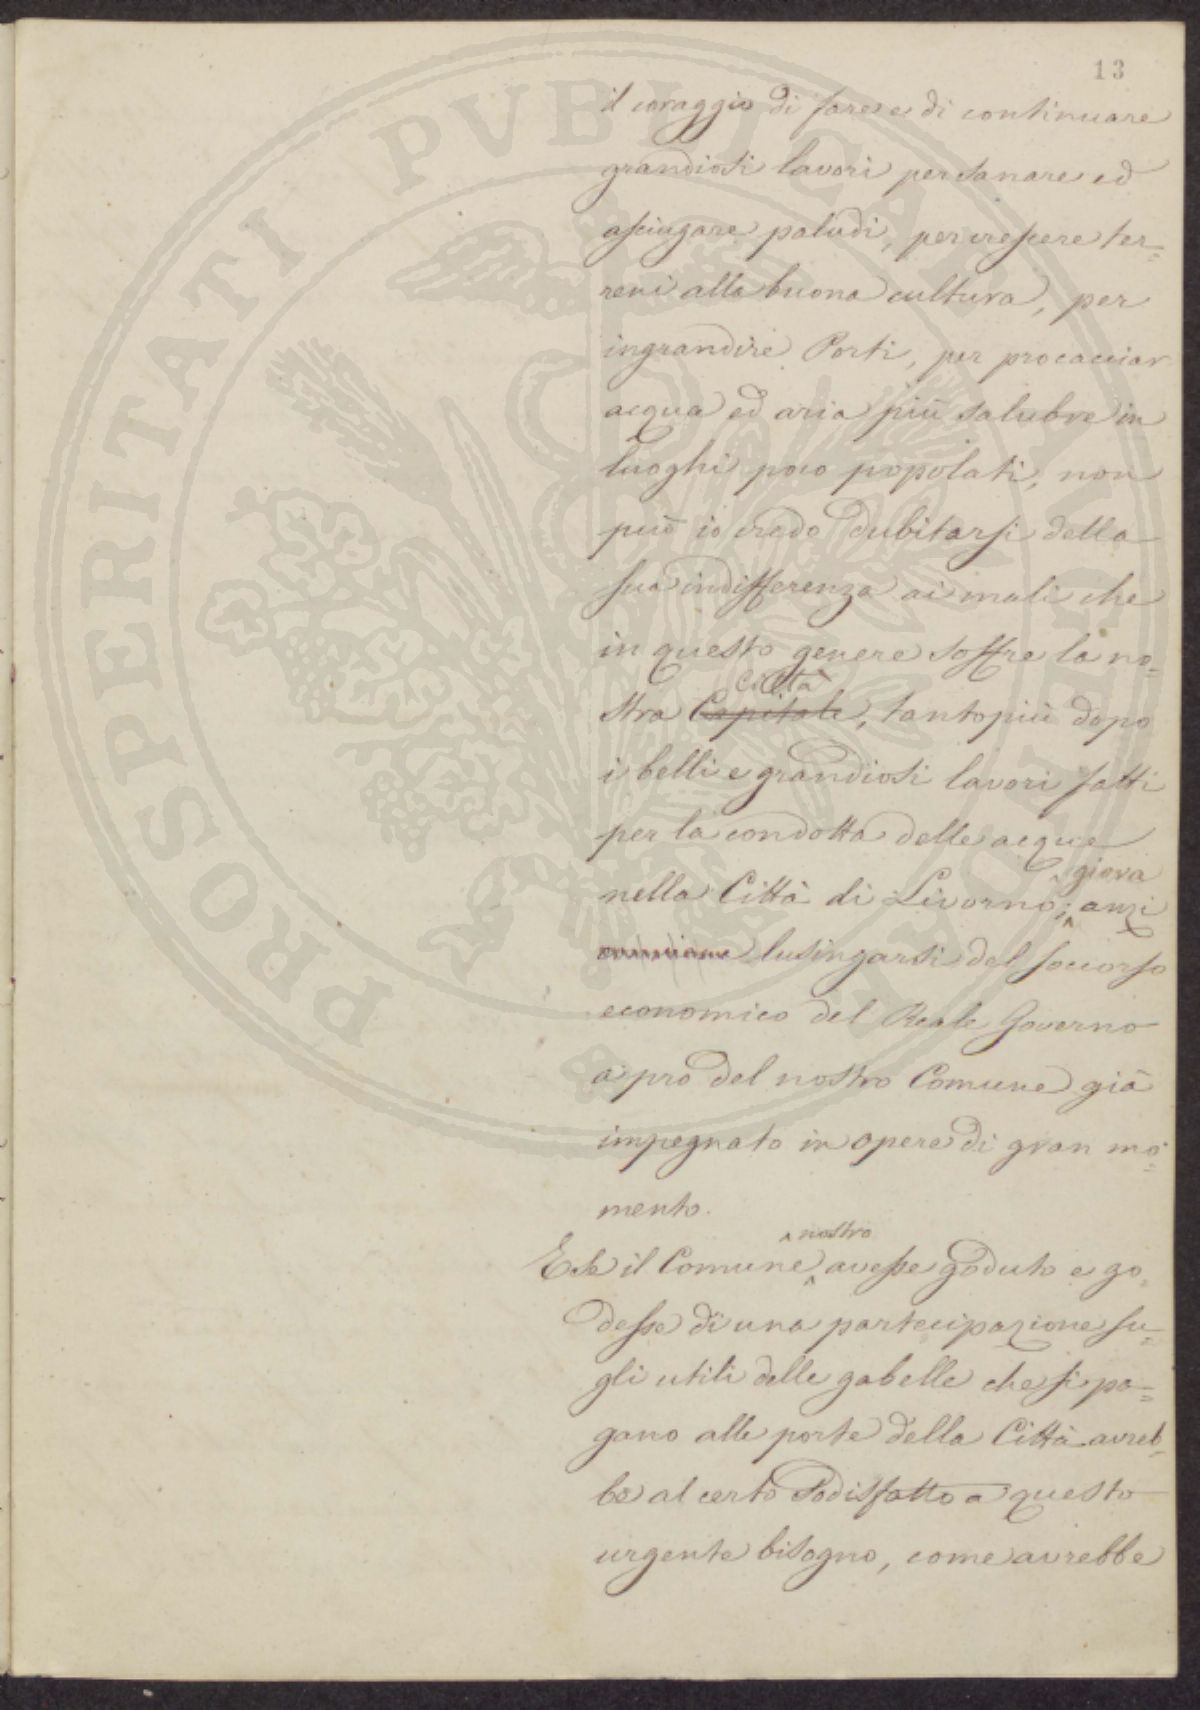 13
il coraggio di fare e di continuare
grandiosi lavori per sanare ed
asciugare paludi, per crescere ter=
reni alla buona cultura, per
ingrandire Porti, per procacciar
acqua ed aria più salubre in
luoghi poco popolati, non
può io credo dubitarsi della
sua indifferenza ai mali che
in questo genere soffre la no=
città
stra Capitale, tantopiù dopo
i belli e grandiosi lavori fatti
per la condotta delle acque
giova
nella Città di Livorno; anzi
lusingarsi del soccorso
economico del Reale Governo
a prò del nostro Comune già
impegnato in opere di gran mo=
mento.
nostro
E se il Comune avesse goduto e go=
desse di una partecipazione su=
gli utili delle gabelle che si pa=
gano alle porte della Città avreb=
be al certo sodisfatto a questo
urgente bisogno, come avrebbe
PROSPERITATI PVBLICAE AVGENDAE